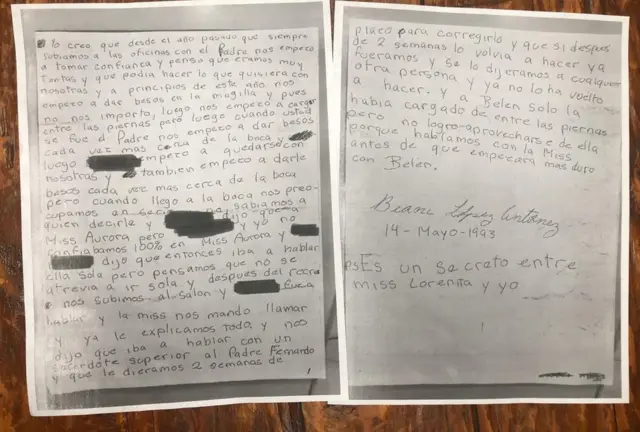 Yo creo que desde el año pasado que siempre
subiamos a las oficinas con el Padre nos empezo
a tomar confianza y penso que eramos muy
tontas y que podia hacer lo que quisiera con
nosotras y a principios de este año nos
empezo a dar besos en la megilla y pues
no nos importo, luego nos empezo a cargar
entre las piernas pero luego cuando usted
se fue el Padre nos empezo a dar besos
cada vez mas cerca de la boca y
luego empezo a quedarse con
nosotras y tambien empezo a darle
besos cada vez mas cerca de la boca
pero cuando llego a la boca nos preo-
cupamos no sabiamos a
quien decirle y dijo que a
Miss Aurora pero y yo no
confiabamos 100% en Miss Aurora y
dijo que entonces iba a hablar
ella sola pero pensamos que no se
atrevia a ir sola y despues del recreo
nos subimos al salon y fue a
hablar y la miss nos mando llamar
y ya le explicamos todo, y nos
dijo que iba a hablar con un
sacerdote superior al Padre Fernando
y que le dieramos 2 semanas de
plazo para carregirlo y que si despues
de 2 semanas lo volvia a hacer ya
fueramos y se lo dijeramos a cualquier
otra persona y ya no lo ha vuelto
a hacer. y a Belen solo la
habia cargado de entre las piernas
pero no logro aprovecharse de ella
porque hablamos con la Miss
antes de que empezara mas duro
con Belen.
López
14-Mayo-1993
ps Es un secreto entre
miss Lorenita y yo